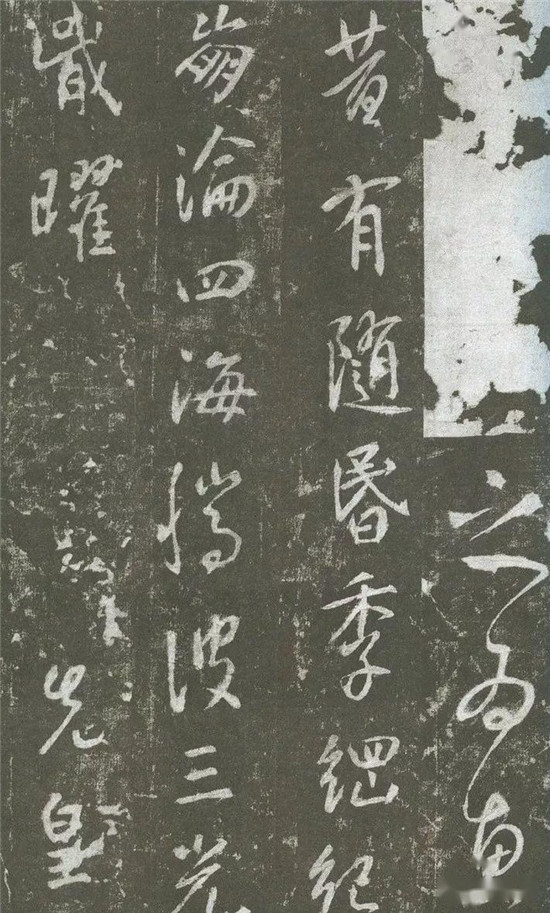 之為
昔有隨昏季綱紀
崩淪四海騰波三光
戢曜
先皇